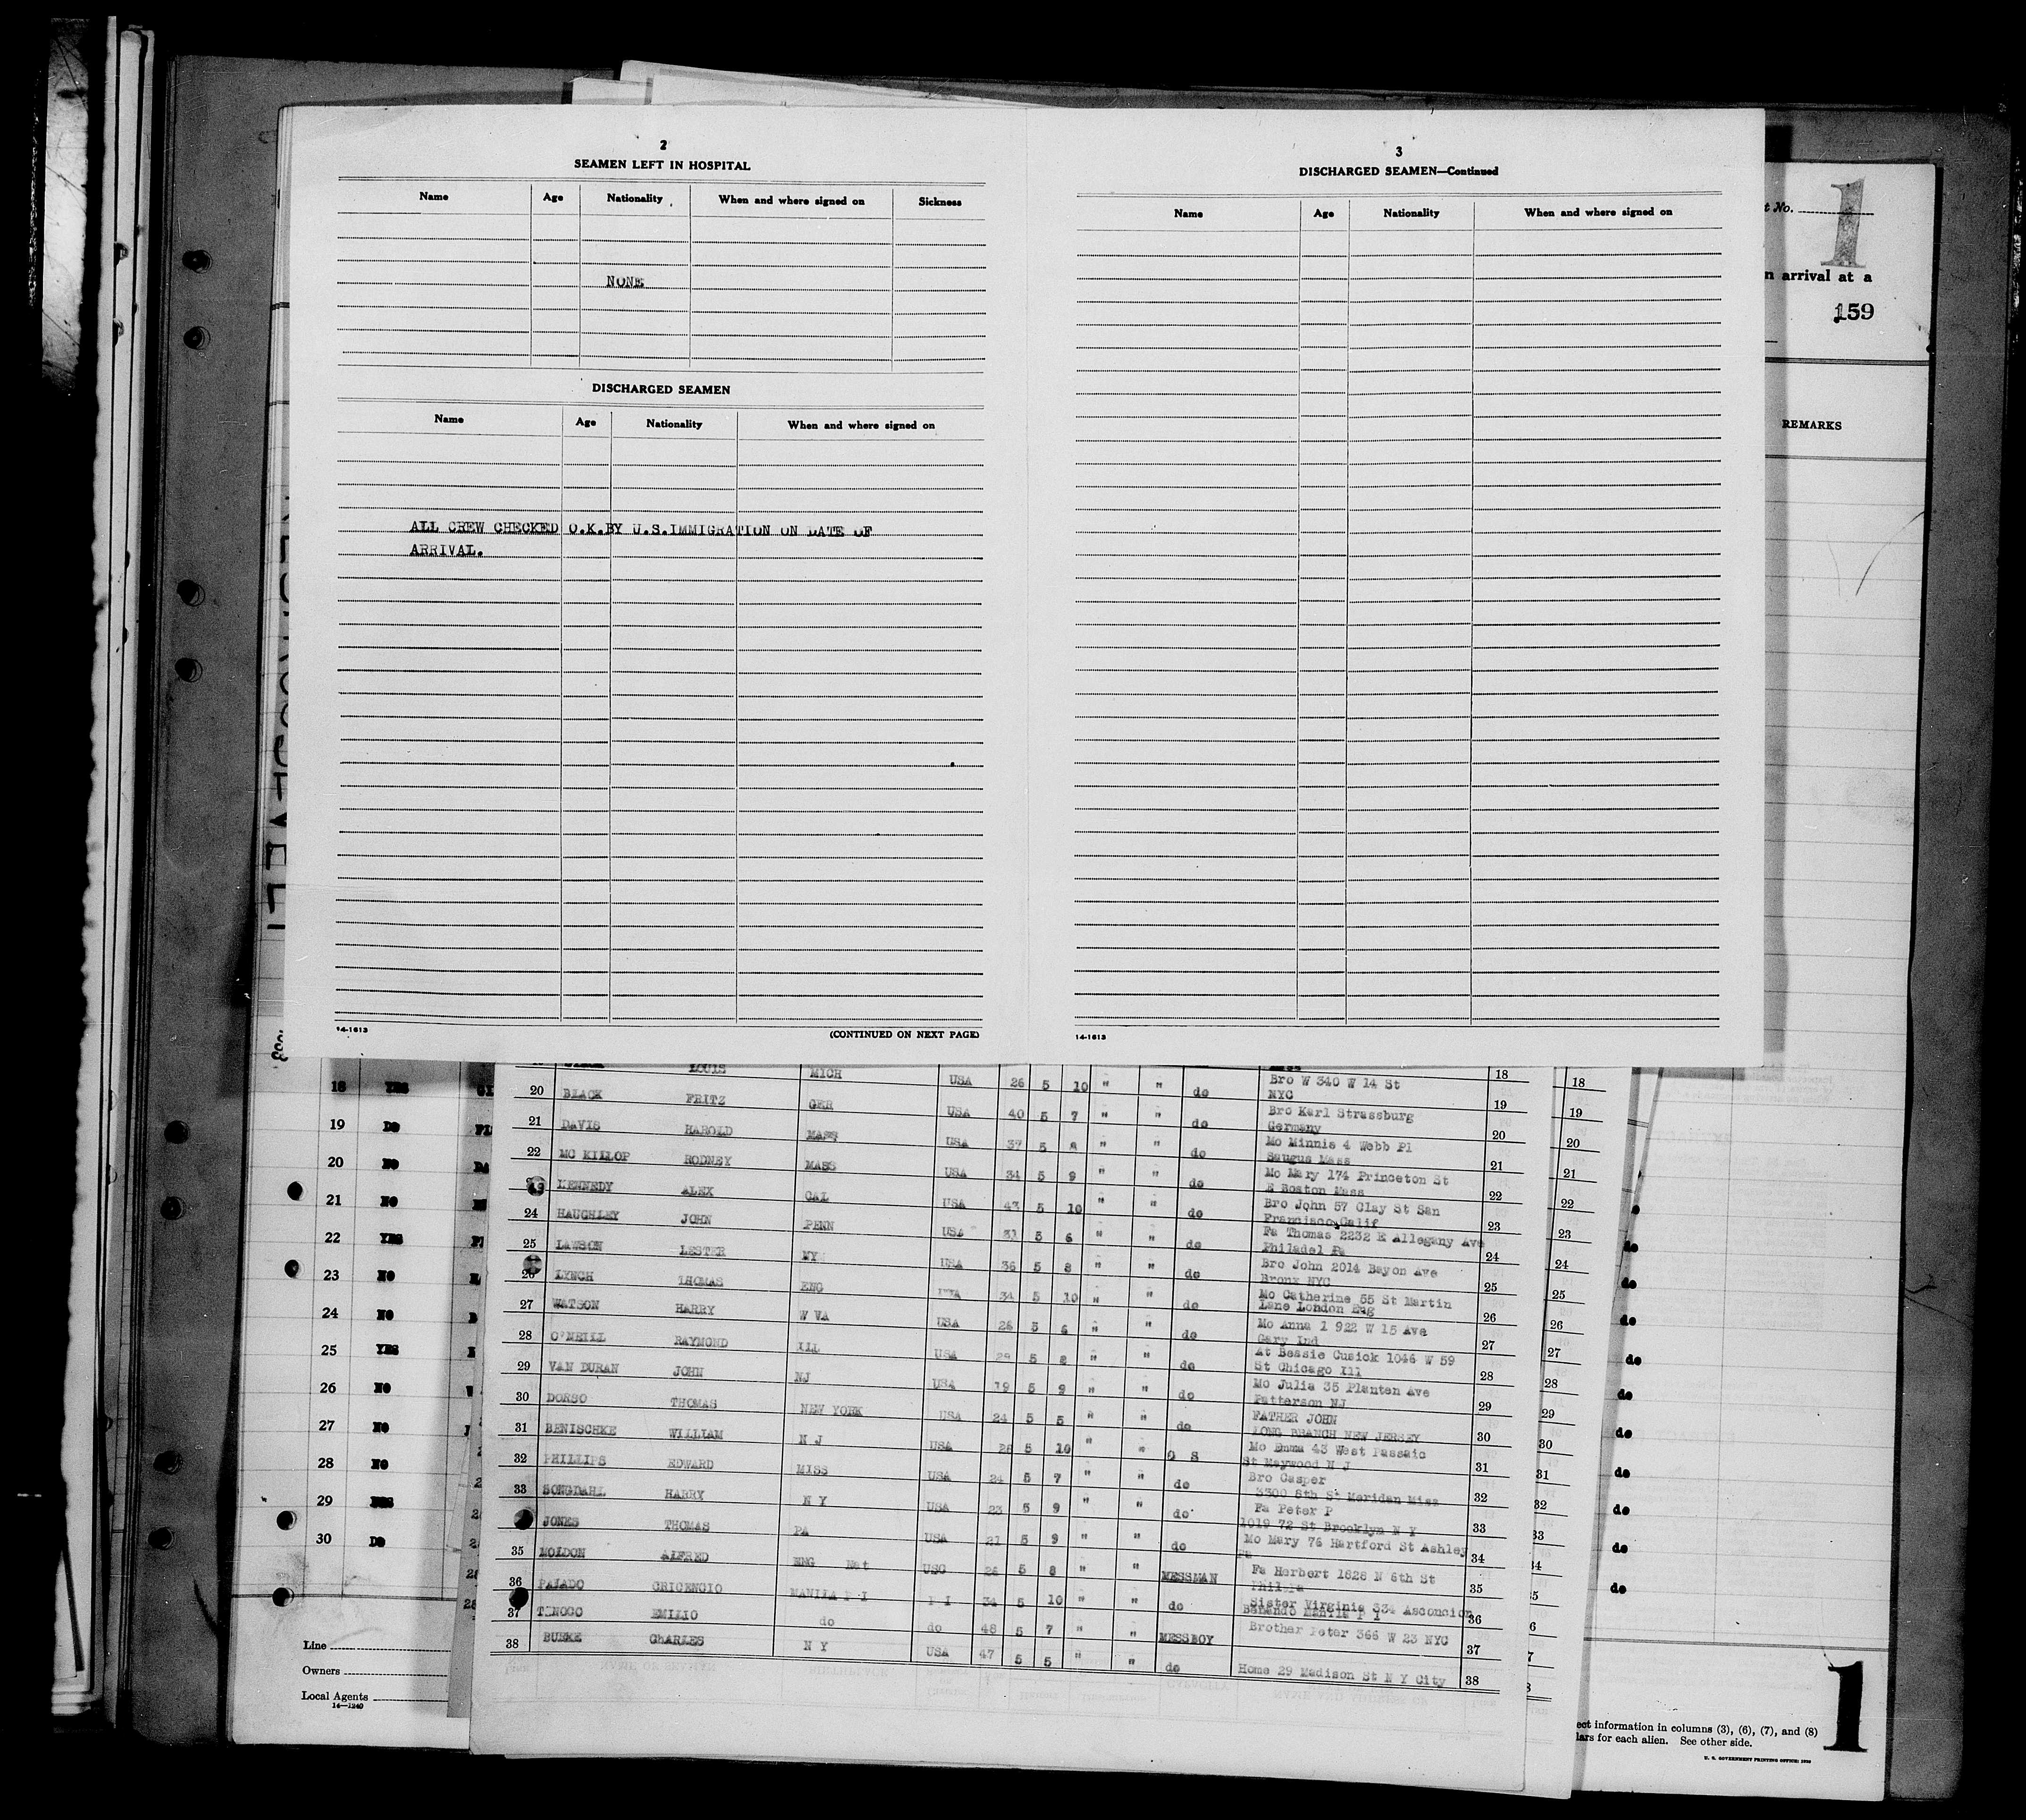 2
SEAMEN LEFT IN HOSPITAL
Name Age Nationality When and where signed on Sickness
NONE
DISCHARGED SEAMEN
Name Age Nationality When and where signed on
ALL CREW CHECKED O.K.BY U.S.IMMIGRATION ON DATE OF
ARRIVAL.
14-1613 (CONTINUED ON NEXT PAGE)
3
DISCHARGED SEAMEN—Continued
Name Age Nationality When and where signed on
14-1613
t No.
1
n arrival at a
159
REMARKS
18 YES
19 DO
20 NO
21 NO
22 YES
23 NO
24 NO
25 YES
26 NO
27 NO
28 NO
29
30 DO
Line
Owners
Local Agents
14—1240
LOUIS MICH USA 26 5 10 " " do Bro W 340 W 14 St
NYC
20 BLACK FRITZ GER USA 40 5 7 " " do Bro Karl Strassburg
Germany
21 DAVIS HAROLD MASS USA 37 5 8 " " do Mo Minnis 4 Webb Pl
Saugus Mass
22 MC KILLOP RODNEY MASS USA 34 5 9 " " do Mo Mary 174 Princeton St
E Boston Mass
KENNEDY ALEX CAL USA 43 5 10 " " do Bro John 57 Clay St San
Francisco, Calif
24 HAUGHLEY JOHN PENN USA 31 5 6 " " do Fa Thomas 2232 E Allegany Ave
Philadel Pa
25 LAWSON LESTER NY USA 36 5 8 " " do Bro John 2014 Bayon Ave
Bronx NYC
26 LYNCH THOMAS ENG 34 5 10 " " do Mo Catherine 55 St Martin
Lane London Eng
27 WATSON HARRY W VA USA 26 5 6 " " do Mo Anna 1 922 W 15 Ave
Gary Ind
28 O'NEILL RAYMOND ILL USA 29 5 8 " " do At Bessie Cusick 1046 W 59
St Chicago Ill
29 VAN DURAN JOHN NJ USA 19 5 9 " " do Mo Julia 35 Planten Ave
Patterson NJ
30 DORSO THOMAS NEW YORK USA 24 5 5 " " do FATHER JOHN
LONG BRANCH NEW JERSEY
31 BENISCHKE WILLIAM N J USA 26 5 10 " " O S Mo Emma 43 West Passaic
St Maywood N J
32 PHILLIPS EDWARD MISS USA 24 5 7 " " do Bro Casper
3300 8th St Meridan Miss
33 SONGDAHL HARRY N Y USA 23 5 9 " " do Fa Peter P
1019 72 St Brooklyn N Y
JONES THOMAS PA USA 21 5 9 " " do Mo Mary 76 Hartford St Ashley
Pa
35 MOLDON ALFRED ENG Nat USC 26 5 8 " " MESSMAN Fa Herbert 1828 N 6th St
Philpa
36 PAJADO CRICENCIO MANILA P I P I 34 5 10 " " do Sister Virginia 334 Asconcion
Banando Manila P I
37 TINOGO EMILIO do do 48 5 7 " " MESSBOY Brother Peter 366 W 23 NYC
38 BURKE CHARLES N Y USA 47 5 5 " " do Home 29 Madison St N Y City
18
19
20
21
22
23
24
25
26
27
28
29
30
31
32
33
34
35
36
37
38
18
19
20
21
22
23
24
25
26
27
28
29
30
31
32
33
34
do
do
do
do
do
do
do
do
do
do
ect information in columns (3), (6), (7), and (8)
lars for each alien. See other side.
U. S. GOVERNMENT PRINTING OFFICE
1